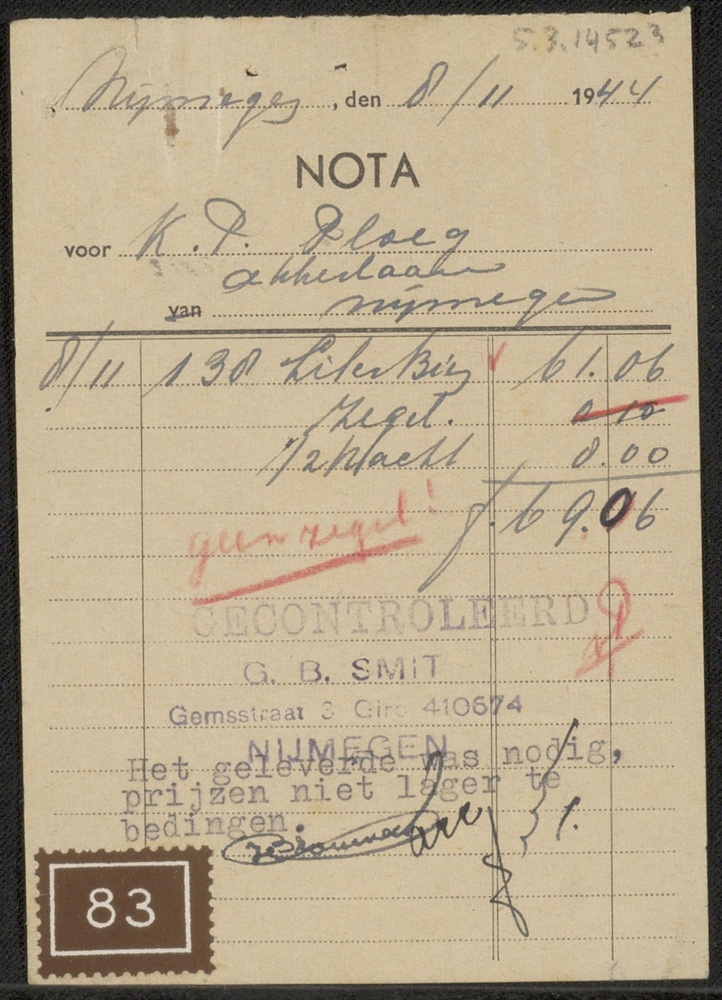 5.3.14523
Nijmegen, den 8/11 1944
NOTA
voor K.P. Ploeg
akkerlaan
van nijmegen
8/11 138 Liter Bier 61.06
Zegel. 0 10
Vracht 8.00
f. 69.06
geen zegel!
GECONTROLEERD
G. B. SMIT
Gemsstraat 3 Giro 410674
NIJMEGEN
Het geleverde was nodig,
prijzen niet lager te
bedingen.
acc
83